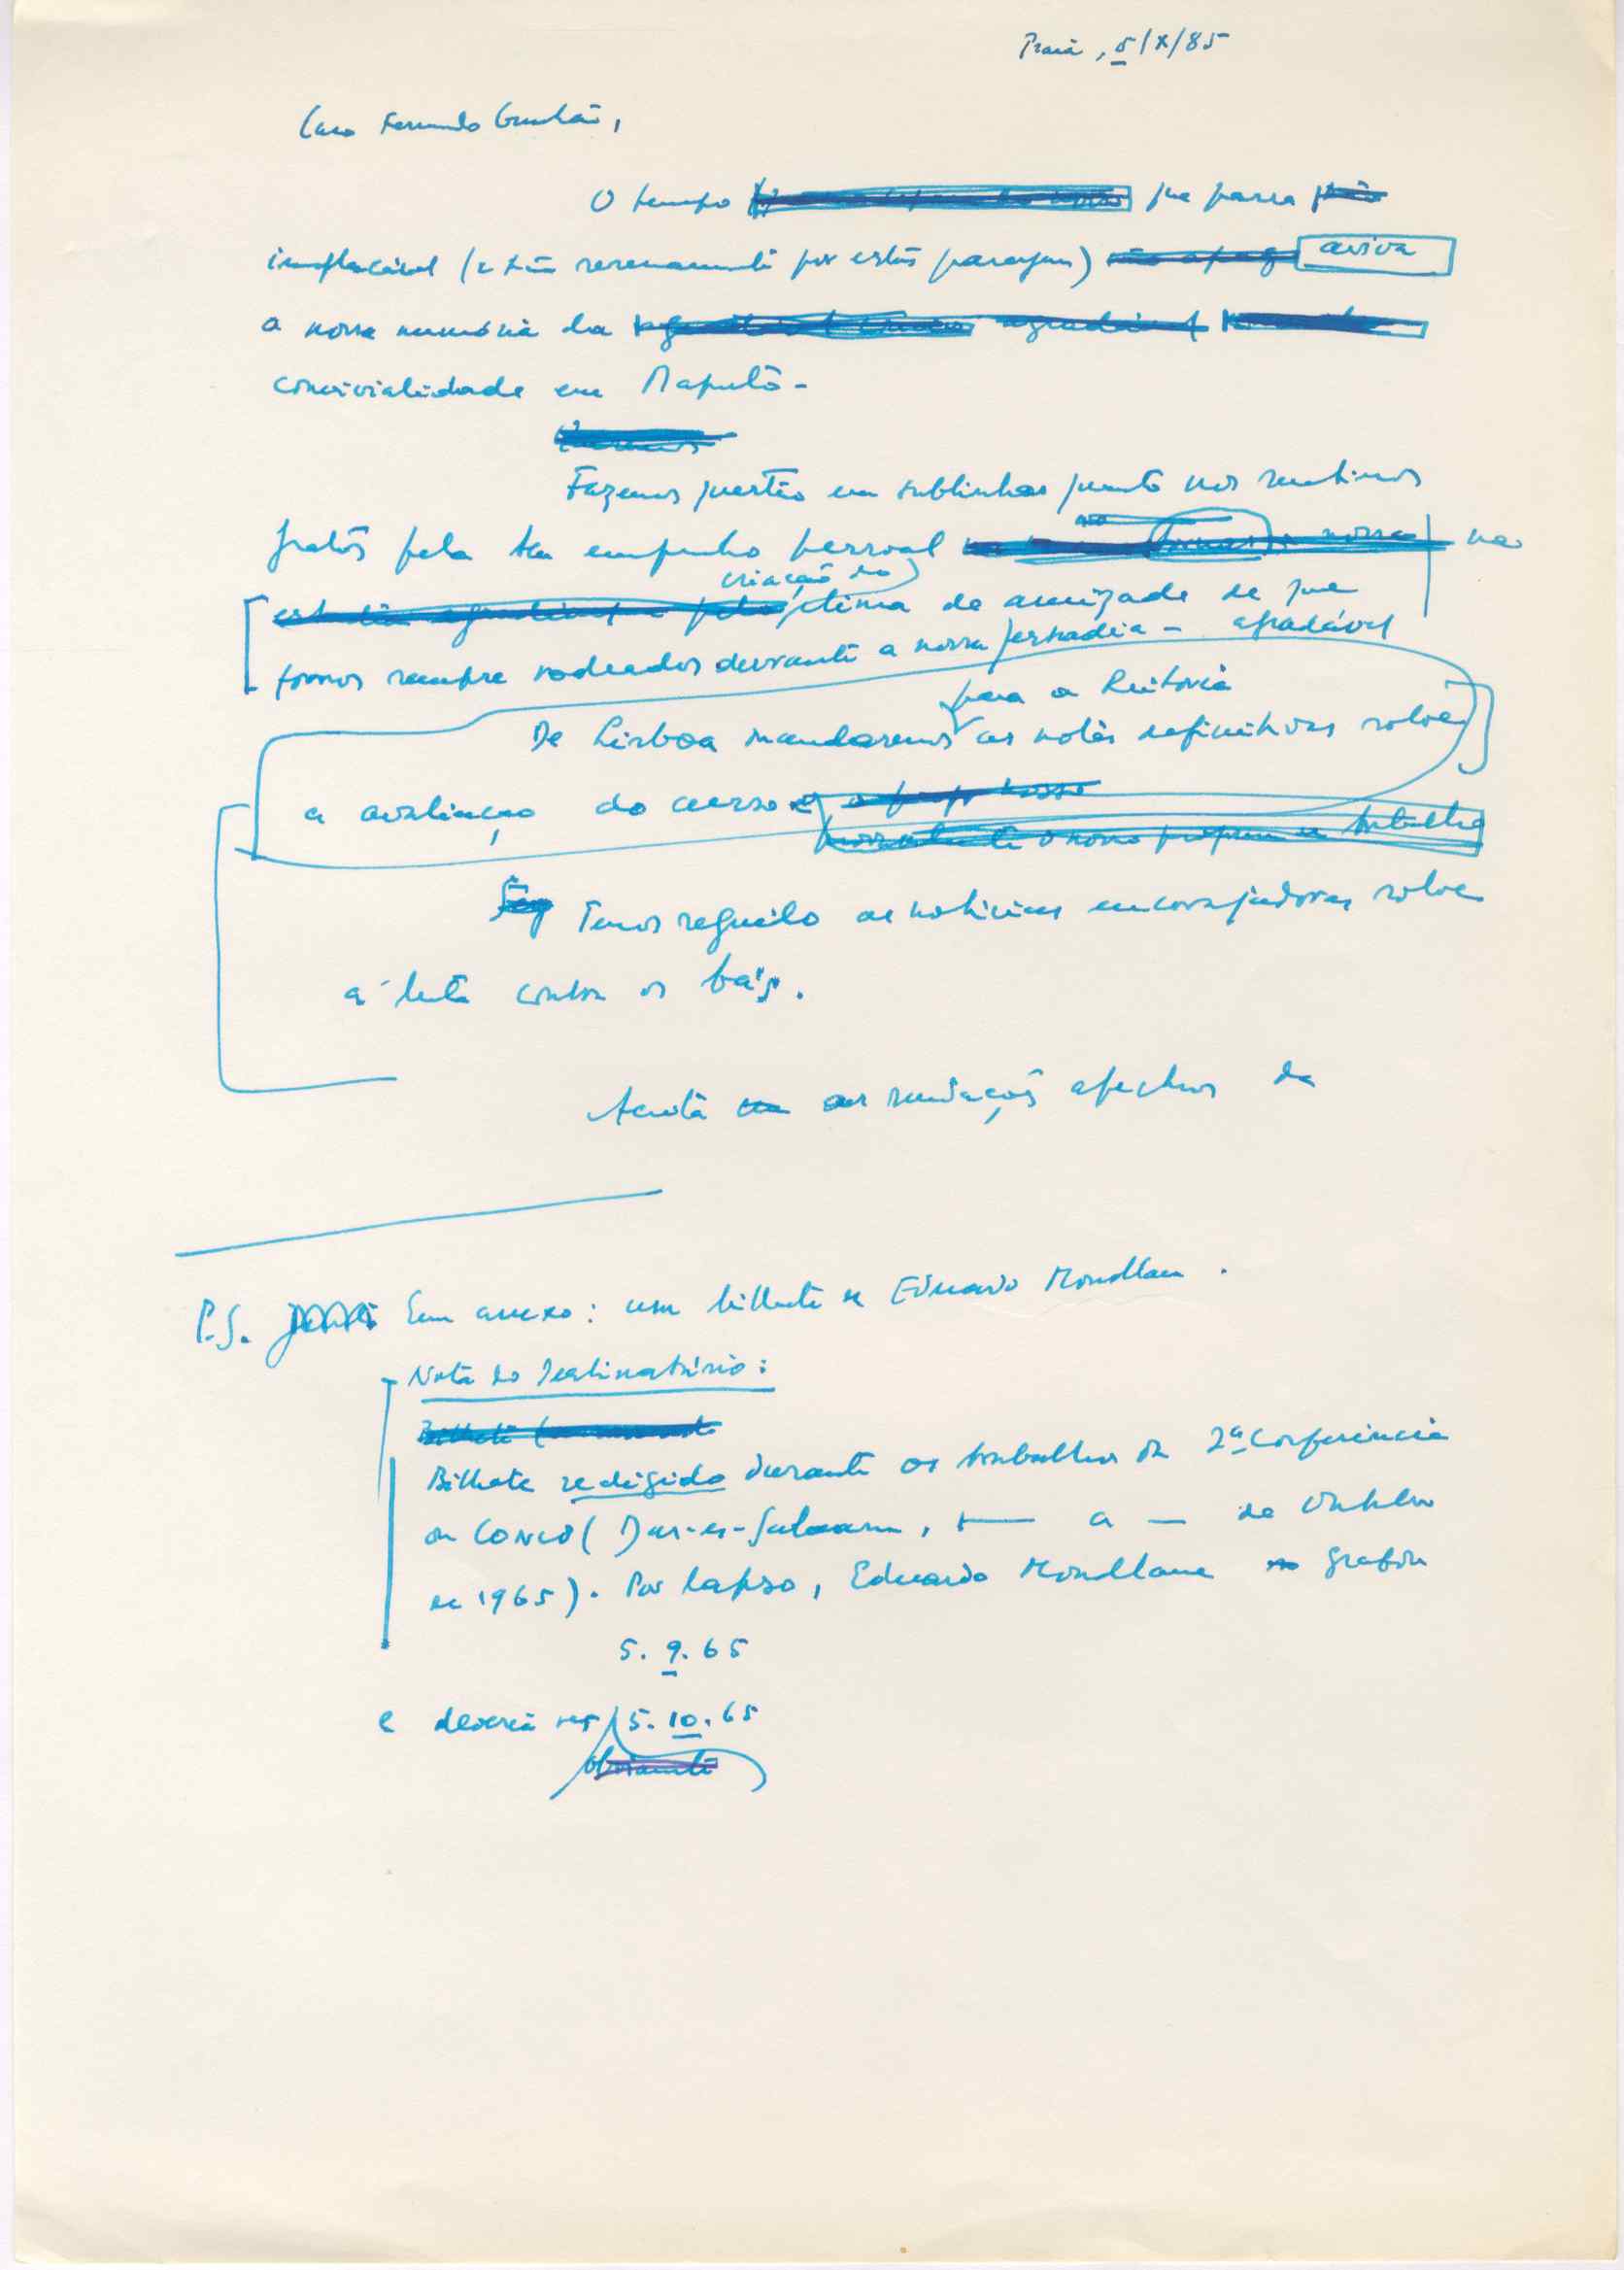 Praia, 5/X/85
Caro Fernando Ganhão,
O tempo que passa
implacável (e tão serenamente por estas paragens) aviva
a nossa memória da
convivialidade em Maputo.
Fazemos questão em sublinhar quanto nos sentimos
gratos pelo teu empenho pessoal na
criação do
clima de amizade de que
fomos sempre rodeados durante a nossa estadia - agradável
para a Reitoria
De Lisboa mandaremos as notas definitivas sobre
a avaliação do curso e
Temos seguido as notícias encorajadoras sobre
a luta contra os
Aceita as saudações afectuosas de
P.S. Em anexo: um bilhete de Eduardo Mondlane.
Nota do Destinatário:
Bilhete
Bilhete redigido durante os trabalhos da 2ª Conferência
da CONCP (Dar-es-Salaam, — a — de Outubro
de 1965). Por lapso, Eduardo Mondlane grafou
5.9.65
e deveria ser 5.10.65
obviamente